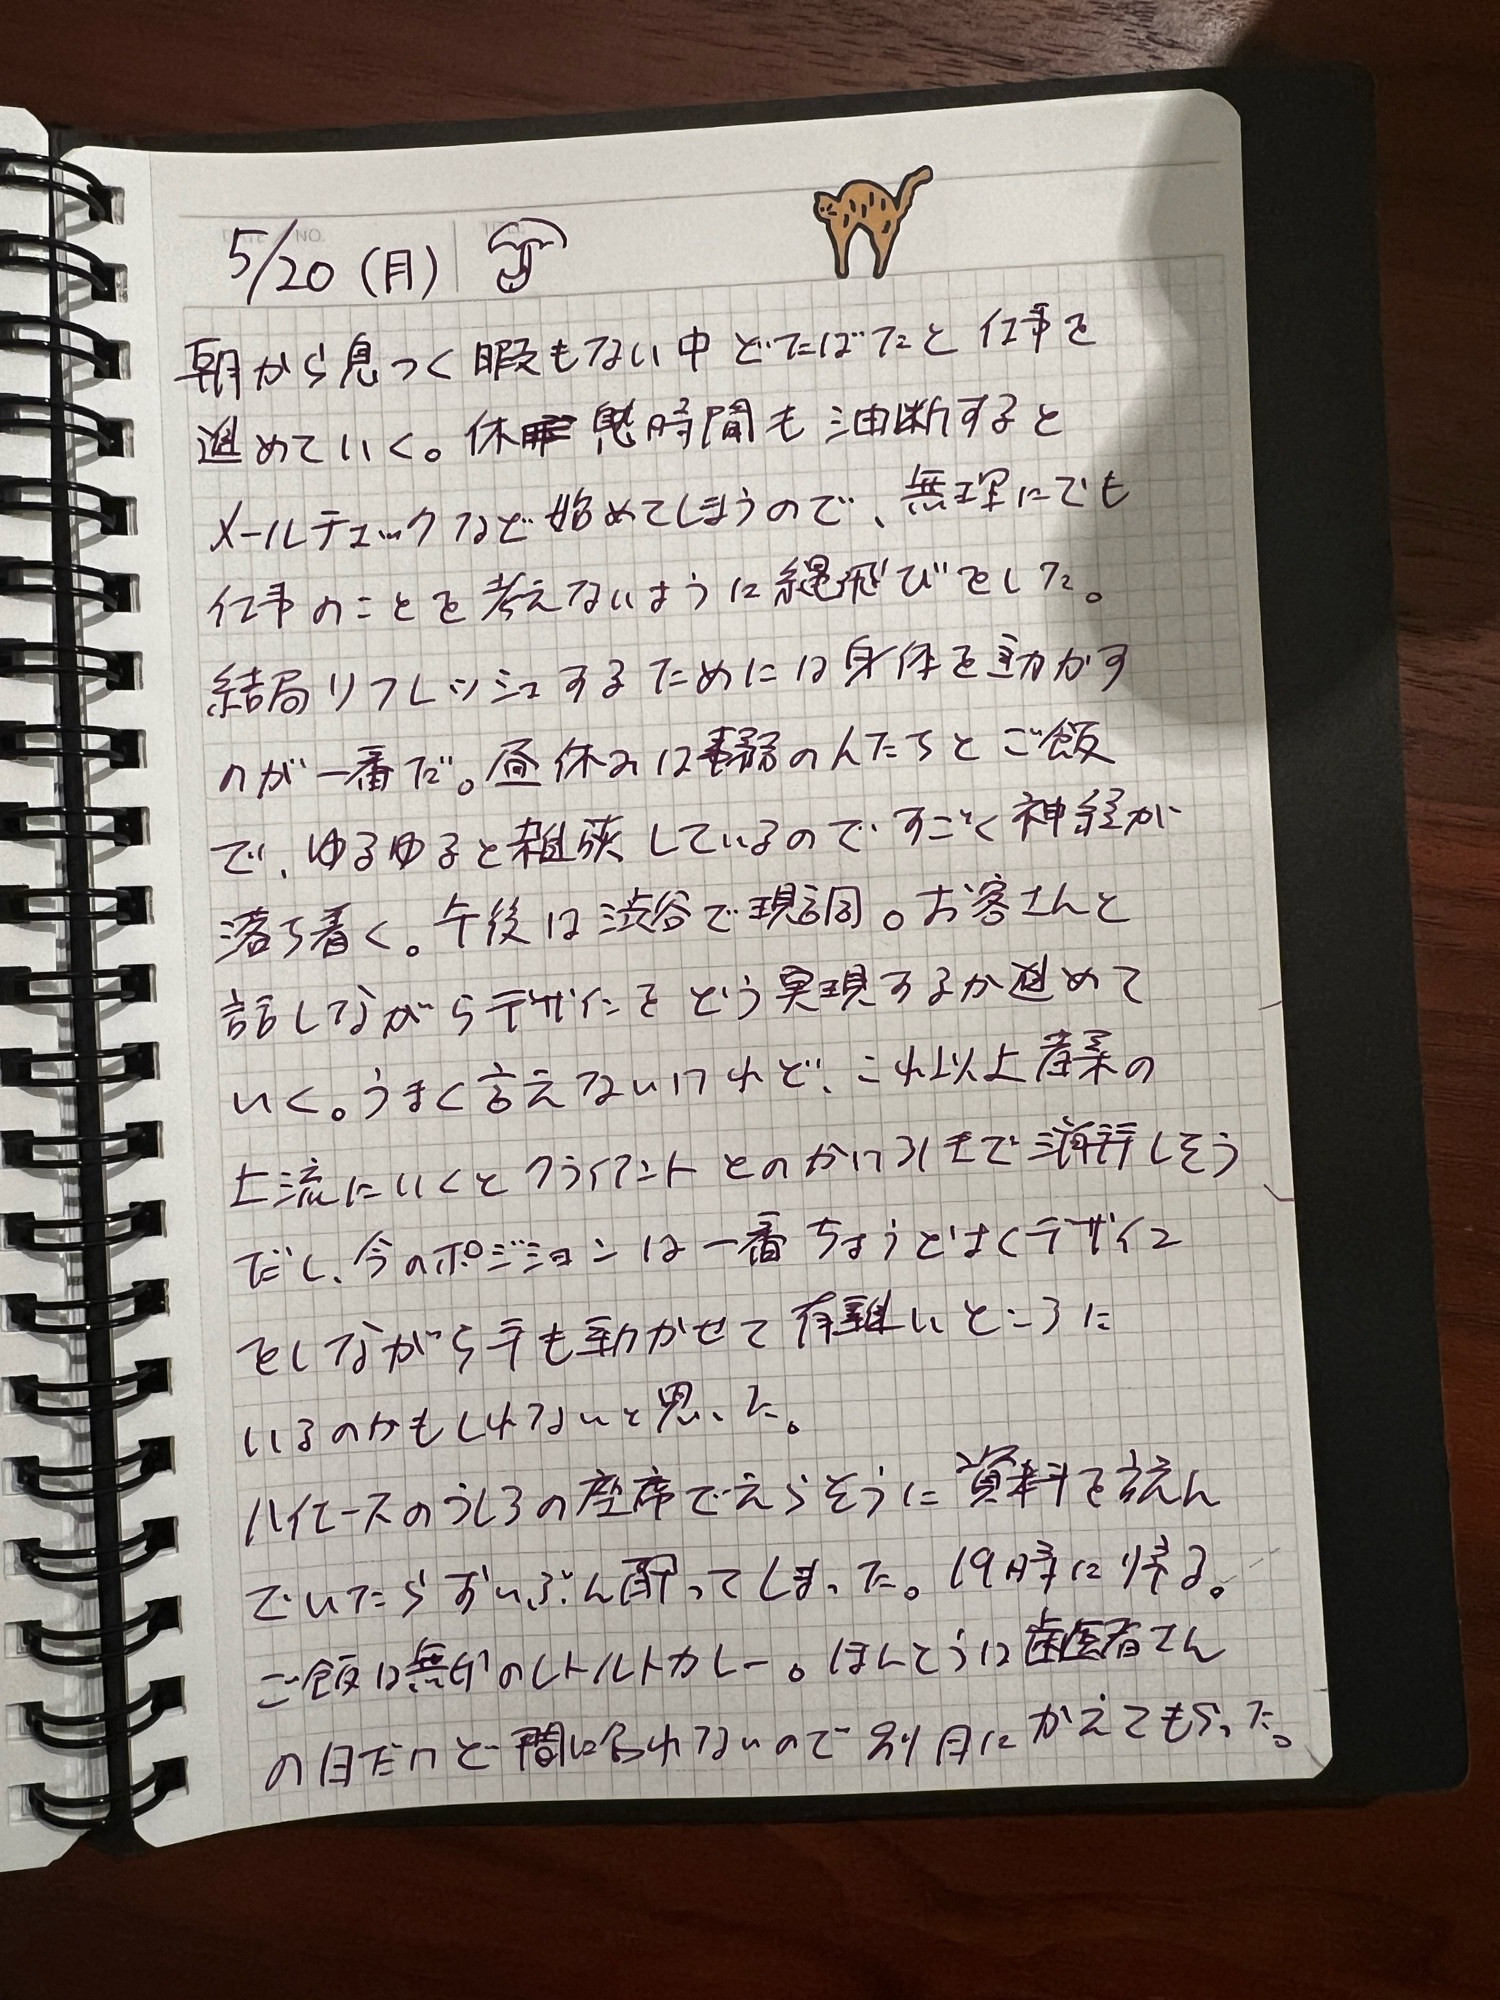 5/20 (月)
朝から息つく暇もない中どたばたと仕事を
進めていく。休憩時間も油断すると
メールチェックなど始めてしまうので、無理にでも
仕事のことを考えないように縄飛びをした。
結局リフレッシュするためには身体を動かす
のが一番だ。昼休みは事務の人たちとご飯
で、ゆるゆると雑談しているのですごく神経が
落ち着く。午後は渋谷で現調。お客さんと
話しながらデザインをどう実現するか進めて
いく。うまく言えないけれど、これ以上産業の
上流にいくとクライアントとのかけ引きで消耗しそう
だし、今のポジションは一番ちょうどよくデザイン
をしながら手も動かせて有難いところに
いるのかもしれないと思った。
ハイエースのうしろの座席でえらそうに資料を読ん
でいたらずいぶん酔ってしまった。19時に帰る。
ご飯は無印のレトルトカレー。ほんとうは歯医者さん
の日だけど間に合わないので別日にかえてもらった。